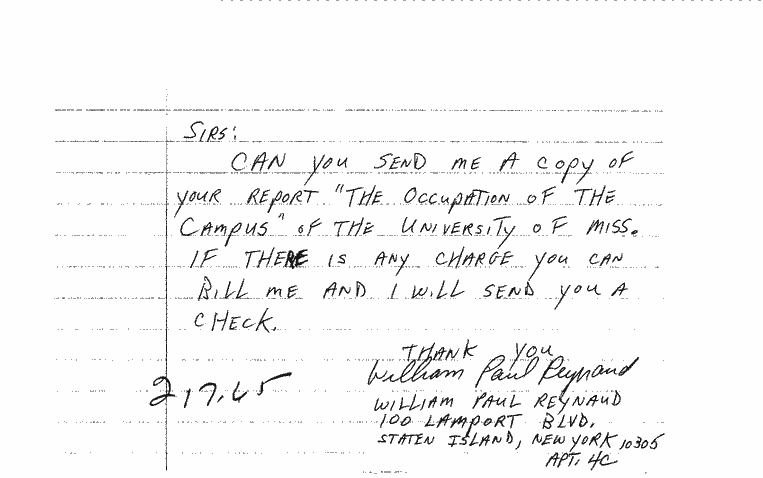 SIRS:
CAN YOU SEND ME A COPY OF
YOUR REPORT "THE OCCUPATION OF THE
CAMPUS" OF THE UNIVERSITY OF MISS.
IF THERE IS ANY CHARGE YOU CAN
BILL ME AND I WILL SEND YOU A
CHECK.
THANK YOU
William Paul Reynaud
WILLIAM PAUL REYNAUD
100 LAMPORT BLVD.
STATEN ISLAND, NEW YORK 10305
APT. 4C
217.65